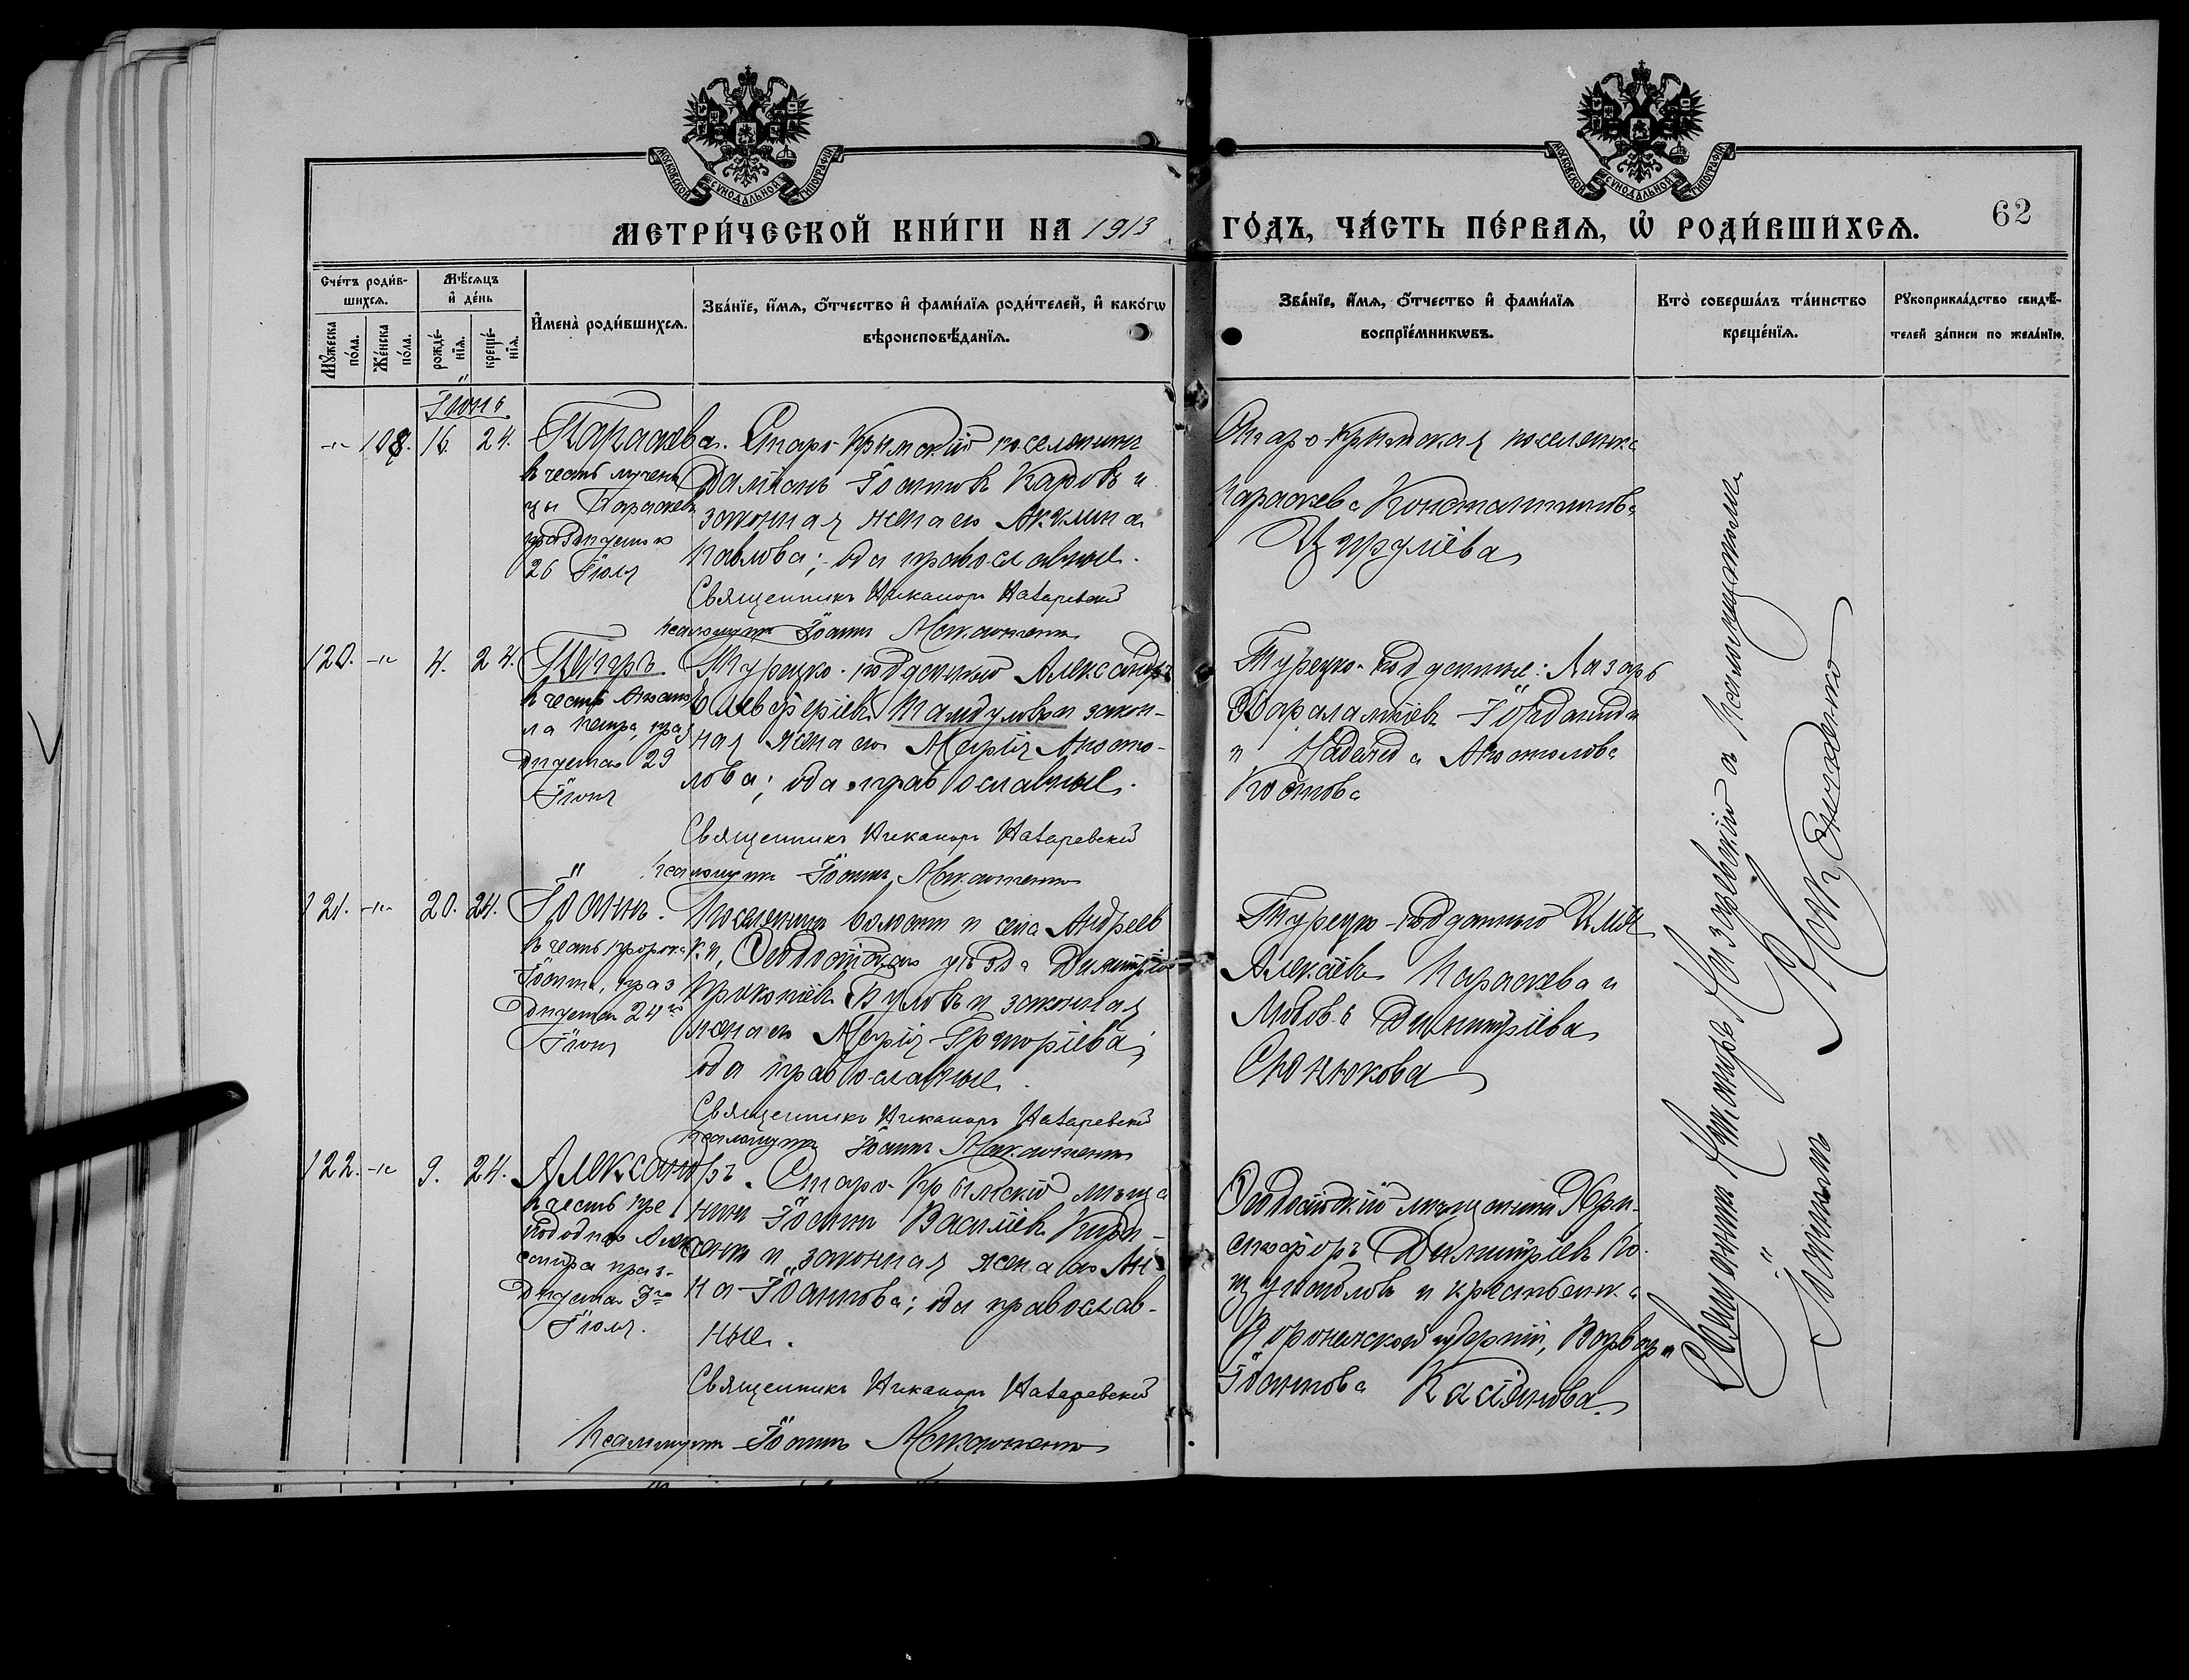 МОСКОВСКОЙ СѴНОДАЛЬНОЙ ТИПОГРАФІИ
МОСКОВСКОЙ СѴНОДАЛЬНОЙ ТИПОГРАФІИ
МЕТРИ́ЧЕСКОЙ КНИ́ГИ НА 1913
ГО́ДЪ, ЧА́СТЬ ПЕ́РВАѦ, Ѽ РОДИ́ВШИХСѦ.
62
Сче́тъ роди́в-
шихсѧ.
Мꙋ́жеска
по́ла.
Же́нска
по́ла.
Мѣ́сѧцъ
и҆ де́нь
рожде́-
нїѧ.
креще́-
нїѧ.
И҆мена̀ роди́вшихсѧ.
Зва́нїе, и҆́мѧ, ѻ҆́тчество и҆ фами́лїѧ роди́телей, и҆ како́гѡ
вѣроисповѣ́данїѧ.
Зва́нїе, и҆́мѧ, ѻ҆́тчество и҆ фами́лїѧ
воспрїе́мникѡвъ.
Кто̀ соверша́лъ та́инство
креще́нїѧ.
Рꙋкоприкла́дство свидѣ́-
телей за́писи по жела́нїю.
Іюнь
-"- 108. 16. 24.
Параскева.
въ честь мучени
цы Параскевы
празднуемыя
26 Іюля
Старо-Крымскій поселянинъ
Даміанъ Іоанновъ Каровъ и
законная жена его Акилина
Павлова; оба православные.
Священникъ Никаноръ Назаревскій
Псаломщикъ Іоаннъ
Старо-Крымская поселянка
Параскева Константинова
120. -"- 4. 24.
Петръ.
въ честь Апосто
ла Петра, пра
зднуемаго 29
Іюня
Турецко-подданный Александръ
Елевферіевъ и закон-
ная жена его Марія Апосто-
лова; оба православные.
Священникъ Никаноръ Назаревскій
Псаломщикъ Іоаннъ
Турецко-подданные: Лазарь
Харалампіевъ
и Надежда Апостолова
Костова
121. -"- 20. 24.
Іоаннъ.
въ честь пророка
Іоанна, праз
днуемаго 24го
Іюня
Поселянинъ волости и села Андреев
ки, Ѳеодосійскаго уѣзда Димитрій
Прокопіевъ и законная
жена его Марія Григоріева;
оба православные.
Священникъ Никаноръ Назаревскій
Псаломщикъ Іоаннъ
Турецко-подданный Илія
Алексіевъ Параскева и
Любовь Димитріева
122. -"- 9. 24.
Александръ.
въ честь пре
подобнаго Алек
сандра праз-
днуемаго 9го
Іюля.
Старо-Крымскій мѣща
нинъ Іоаннъ Василіевъ
и законная жена его Ан
на Іоаннова; оба православ-
ные.
Священникъ Никаноръ Назаревскій
Псаломщикъ Іоаннъ
Ѳеодосійскій мѣщанинъ Хри-
сифоръ Димитріевъ
и крестьянка
Воронежской губерніи, Варвара
Іоаннова Касіянова.
Священникъ Никаноръ Назаревскій и Псаломщикъ
Іоаннъ